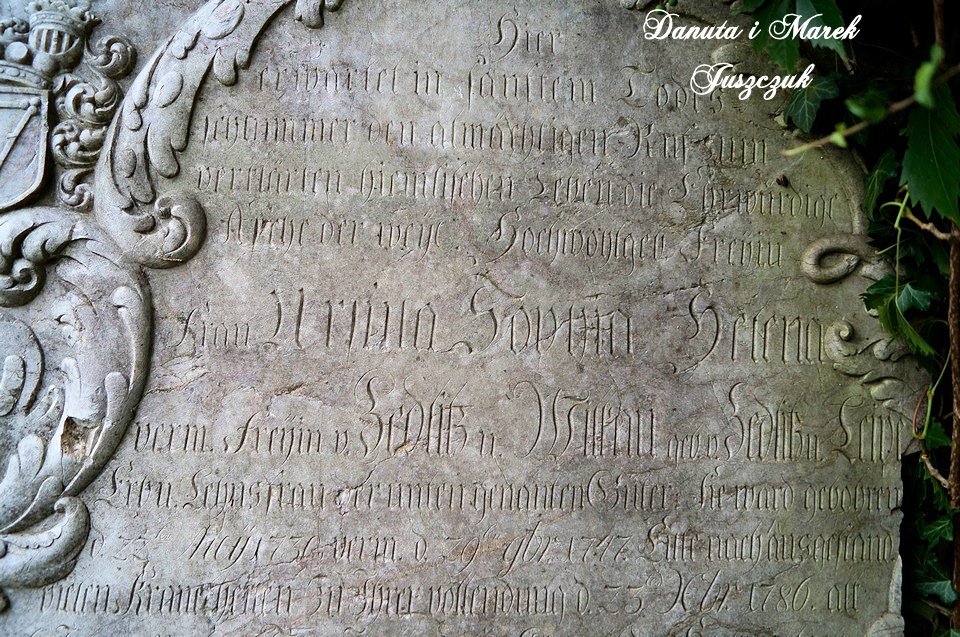 Danuta i Marek
Juszczuk
Hier
erwartet in sanftem Todes
schlummer den allmächtigen Ruf zum
verklärten himlischen Leben die Ehrwürdige
Asche der weyl. Hochwohlgeb. Freyin
Frau Ursula Sophia Helena
verm. Freyin v. Zedlitz u. Wilkau geb. v. Zedlitz u. Leipe
Erb u. Lehnsfrau der unten genanten Güter. Sie ward gebohren
d. 1731. verm. d. 9br. 1747. Eilte nach ausgestand.
vielen Kranckheiten zu Ihrer vollendung d. Xbr. 1786. alt